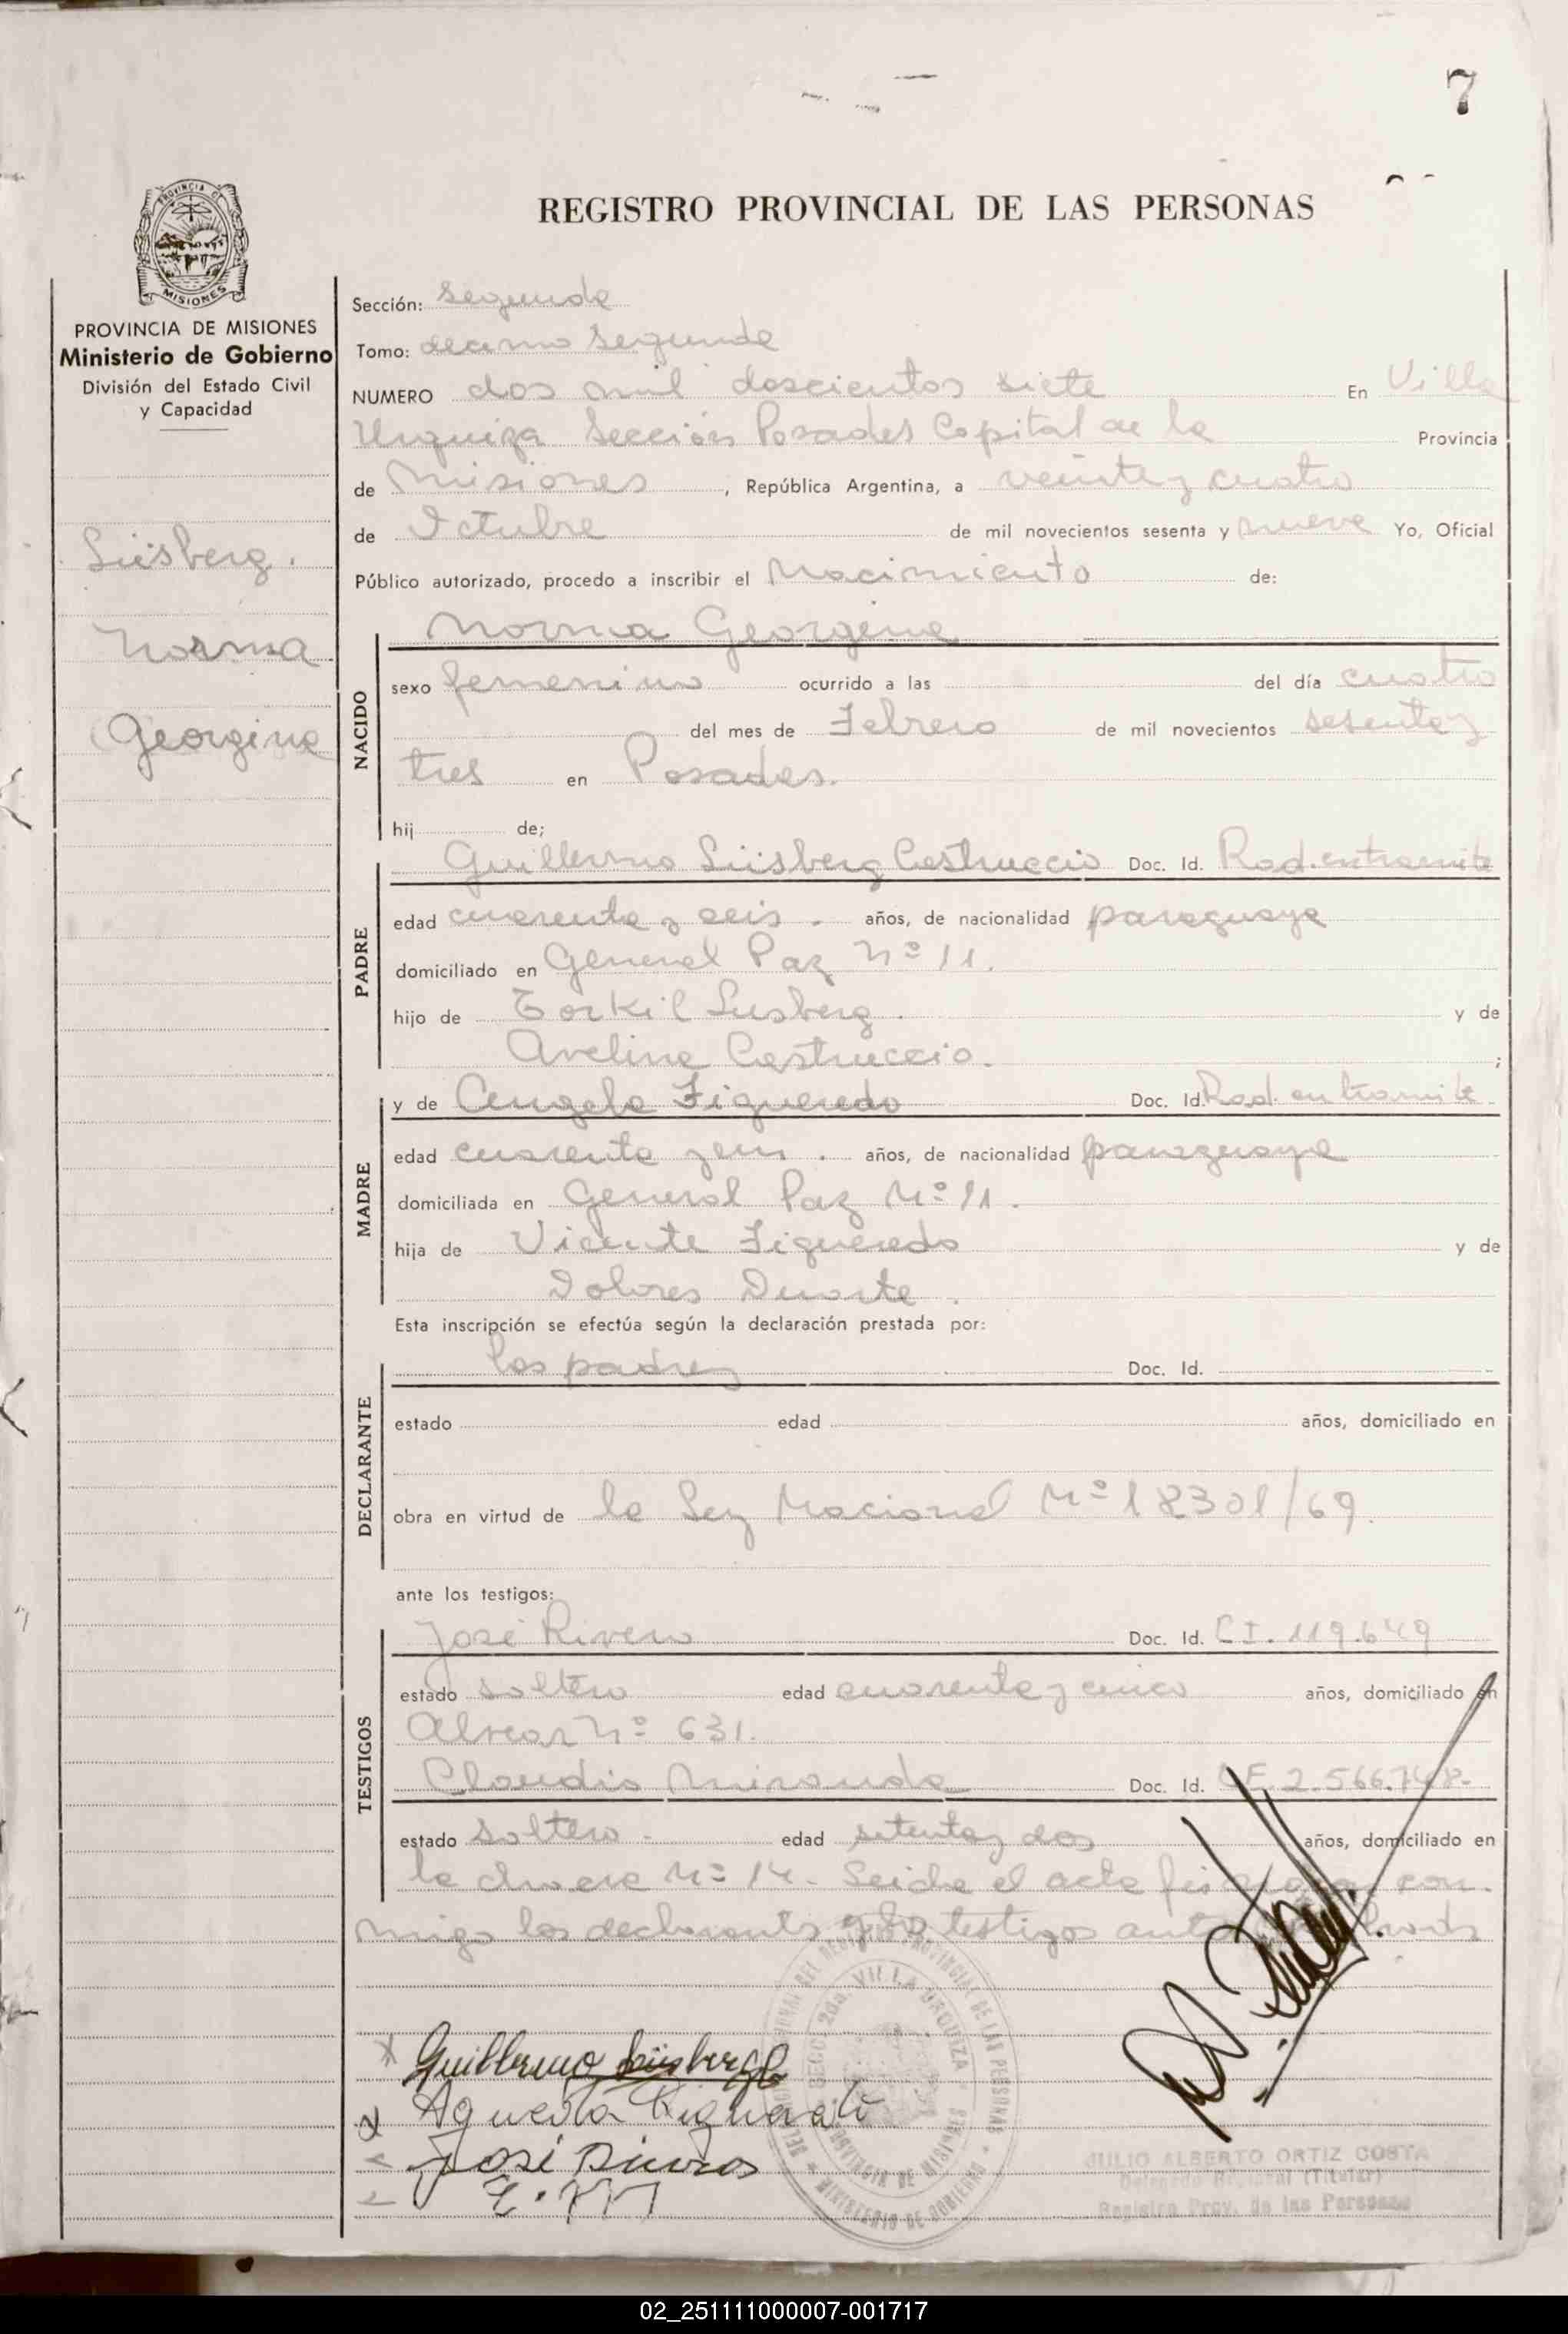 7
REGISTRO PROVINCIAL DE LAS PERSONAS
PROVINCIA DE MISIONES
Ministerio de Gobierno
División del Estado Civil
y Capacidad
Lüisberg.
Norma
Georgina
Sección: Segunda
Tomo: decimo segunda
NUMERO dos mil doscientos siete En Villa
Urquiza Sección Posadas Capital de la Provincia
de Misiones, República Argentina, a veinte y cuatro
de Octubre de mil novecientos sesenta y nueve Yo, Oficial
Público autorizado, procedo a inscribir el Nacimiento de:
NACIDO
Norma Georgina
sexo femenino ocurrido a las del día cuatro
del mes de Febrero de mil novecientos sesenta y
tres en Posadas.
hij de;
PADRE
Guillermo Lüisberg Castruccio Doc. Id. Rad. en tramite
edad cuarenta y seis. años, de nacionalidad paraguaya
domiciliado en General Paz Nº 11.
hijo de Torkil Lusberg. y de
Avelina Castruccio. ;
MADRE
y de Angela Figueredo Doc. Id. Rad. en tramite
edad cuarenta y . años, de nacionalidad paraguaya
domiciliada en General Paz Nº 11.
hija de Vicente Figueredo y de
Dolores Duarte.
Esta inscripción se efectúa según la declaración prestada por:
DECLARANTE
los padres Doc. Id.
estado edad años, domiciliado en
obra en virtud de la Ley Nacional Nº 18301/69.
ante los testigos:
TESTIGOS
José Rivero Doc. Id. C I. 119.649
estado soltero edad cuarenta y cinco años, domiciliado en
Alvear Nº 631.
Claudio Miranda Doc. Id. 2.566.748.
estado soltero. edad setenta y dos años, domiciliado en
la chacra Nº 14. Leida el acta firman con
migo los declarants y los testigos
Guillermo Lüisberg
José
SECC. 2da. VILLA URQUIZA
PROVINCIA DE MISIONES
MINISTERIO DE GOBIERNO
JULIO ALBERTO ORTIZ COSTA
(Titular)
Registro Prov. de las Personas
02_251111000007-001717